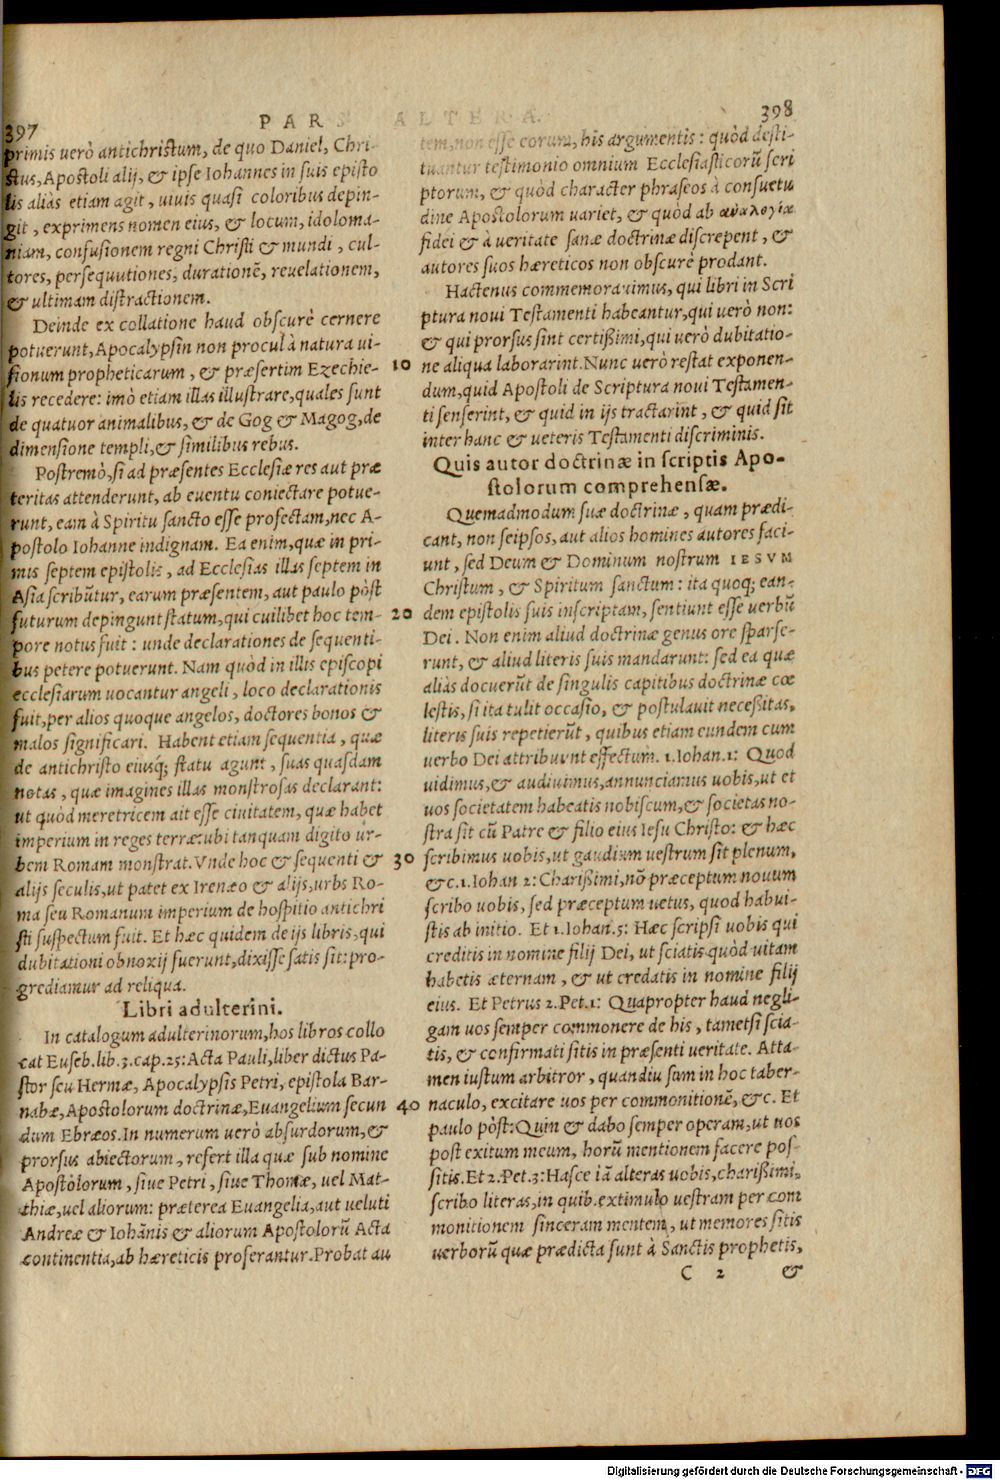 397
PARS ALTERA.
398
primis uerò antichristum, de quo Daniel, Chri-
stus, Apostoli alij, & ipse Iohannes in suis episto
lis aliàs etiam agit, uiuis quasi coloribus depin-
git, exprimens nomen eius, & locum, idoloma-
niam, confusionem regni Christi & mundi, cul-
tores, persequutiones, durationẽ, reuelationem,
& ultimam distractionem.
Deinde ex collatione haud obscurè cernere
potuerunt, Apocalypsin non procul à natura ui-
sionum propheticarum, & præsertim Ezechie-
lis recedere: imò etiam illas illustrare, quales sunt
de quatuor animalibus, & de Gog & Magog, de
dimensione templi, & similibus rebus.
Postremò, si ad præsentes Ecclesiæ res aut præ
teritas attenderunt, ab euentu coniectare potue-
runt, eam à Spiritu sancto esse profectam, nec A-
postolo Iohanne indignam. Ea enim, quæ in pri-
mis septem epistolis, ad Ecclesias illas septem in
Asia scribũtur, earum præsentem, aut paulo pòst
futurum depingunt statum, qui cuilibet hoc tem-
pore notus fuit: unde declarationes de sequenti-
bus petere potuerunt. Nam quòd in illis episcopi
ecclesiarum uocantur angeli, loco declarationis
fuit, per alios quoque angelos, doctores bonos &
malos significari. Habent etiam sequentia, quæ
de antichristo eiusq; statu agunt, suas quasdam
notas, quæ imagines illas monstrosas declarant:
ut quòd meretricem ait esse ciuitatem, quæ habet
imperium in reges terræ: ubi tanquam digito ur-
bem Romam monstrat. Vnde hoc & sequenti &
alijs seculis, ut patet ex Irenæo & alijs, urbs Ro-
ma seu Romanum imperium de hospitio antichri
sti suspectum fuit. Et hæc quidem de ijs libris, qui
dubitationi obnoxij fuerunt, dixisse satis sit: pro-
grediamur ad reliqua.
Libri adulterini.
In catalogum adulterinorum, hos libros collo
cat Euseb. lib. 3. cap. 25: Acta Pauli, liber dictus Pa-
stor seu Hermæ, Apocalypsis Petri, epistola Bar-
nabæ, Apostolorum doctrinæ, Euangelium secun
dum Ebræos. In numerum uerò absurdorum, &
prorsus abiectorum, refert illa quæ sub nomine
Apostòlorum, siue Petri, siue Thomæ, uel Mat-
thiæ, uel aliorum: præterea Euangelia, aut ueluti
Andreæ & Iohãnis & aliorum Apostolorũ Acta
continentia, ab hæreticis proferantur. Probat au
10
20
30
40
tem, non esse eorum, his argumentis: quòd desti-
tuantur testimonio omnium Ecclesiasticorũ scri
ptorum, & quòd character phraseos à consuetu
dine Apostolorum uariet, & quòd ab ἀναλογίᾳ
fidei & à ueritate sanæ doctrinæ discrepent, &
autores suos hæreticos non obscurè prodant.
Hactenus commemorauimus, qui libri in Scri
ptura noui Testamenti habeantur, qui uerò non:
& qui prorsus sint certißimi, qui uerò dubitatio-
ne aliqua laborarint. Nunc uerò restat exponen-
dum, quid Apostoli de Scriptura noui Testamen-
ti senserint, & quid in ijs tractarint, & quid sit
inter hanc & ueteris Testamenti discriminis.
Quis autor doctrinæ in scriptis Apo-
stolorum comprehensæ.
Quemadmodum suæ doctrinæ, quam prædi-
cant, non seipsos, aut alios homines autores faci-
unt, sed Deum & Dominum nostrum IESVM
Christum, & Spiritum sanctum: ita quoq; ean-
dem epistolis suis inscriptam, sentiunt esse uerbũ
Dei. Non enim aliud doctrinæ genus ore sparse-
runt, & aliud literis suis mandarunt: sed ea quæ
aliàs docuerũt de singulis capitibus doctrinæ cœ
lestis, si ita tulit occasio, & postulauit neceßitas,
literis suis repetierũt, quibus etiam eundem cum
uerbo Dei attribuunt effectum. 1. Iohan. 1: Quod
uidimus, & audiuimus, annunciamus uobis, ut et
uos societatem habeatis nobiscum, & societas no-
stra sit cũ Patre & filio eius Iesu Christo: & hæc
scribimus uobis, ut gaudium uestrum sit plenum,
&c. 1. Iohan 2: Charißimi, nõ præceptum nouum
scribo uobis, sed præceptum uetus, quod habui-
stis ab initio. Et 1. Iohan. 5: Hæc scripsi uobis qui
creditis in nomine filij Dei, ut sciatis quòd uitam
habetis æternam, & ut credatis in nomine filij
eius. Et Petrus 2. Pet. 1: Quapropter haud negli-
gam uos semper commonere de his, tametsi scia-
tis, & confirmati sitis in præsenti ueritate. Atta-
men iustum arbitror, quandiu sum in hoc taber-
naculo, excitare uos per commonitionẽ, &c. Et
paulo pòst: Quin & dabo semper operam, ut uos
post exitum meum, horũ mentionem facere pos-
sitis. Et 2. Pet. 3: Hasce iã alteras uobis, charißimi,
scribo literas, in quib. extimulo uestram per com
monitionem sinceram mentem, ut memores sitis
uerborũ quæ prædicta sunt à Sanctis prophetis,
C 2 &
Digitalisierung gefördert durch die Deutsche Forschungsgemeinschaft - DFG